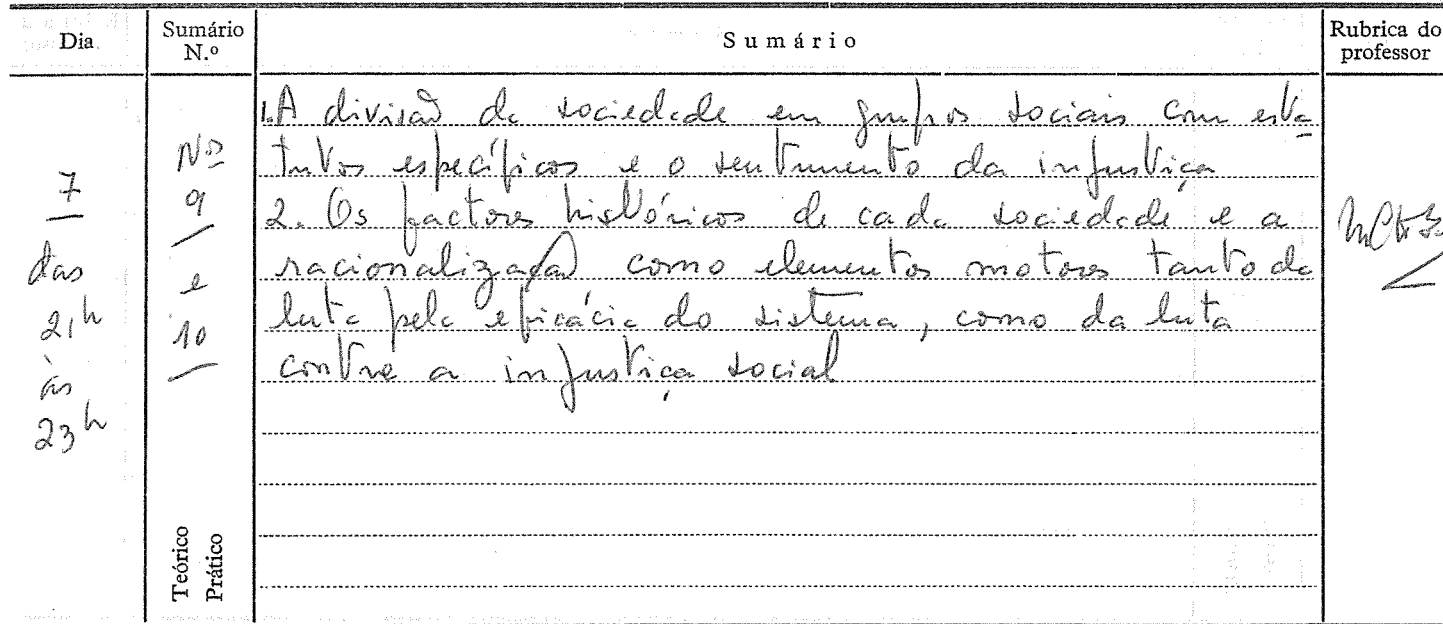 Dia
Sumário N.º
Sumário
Rubrica do professor
7
das
21h
às
23h
Nos
9
e
10
1. A divisão da sociedade em grupos sociais com esta
tutos específicos e o sentimento da injustiça
2. Os factores históricos de cada sociedade e a
racionalização como elementos motores tanto da
luta pela eficácia do sistema, como da luta
contra a injustiça social
Teórico
Prático